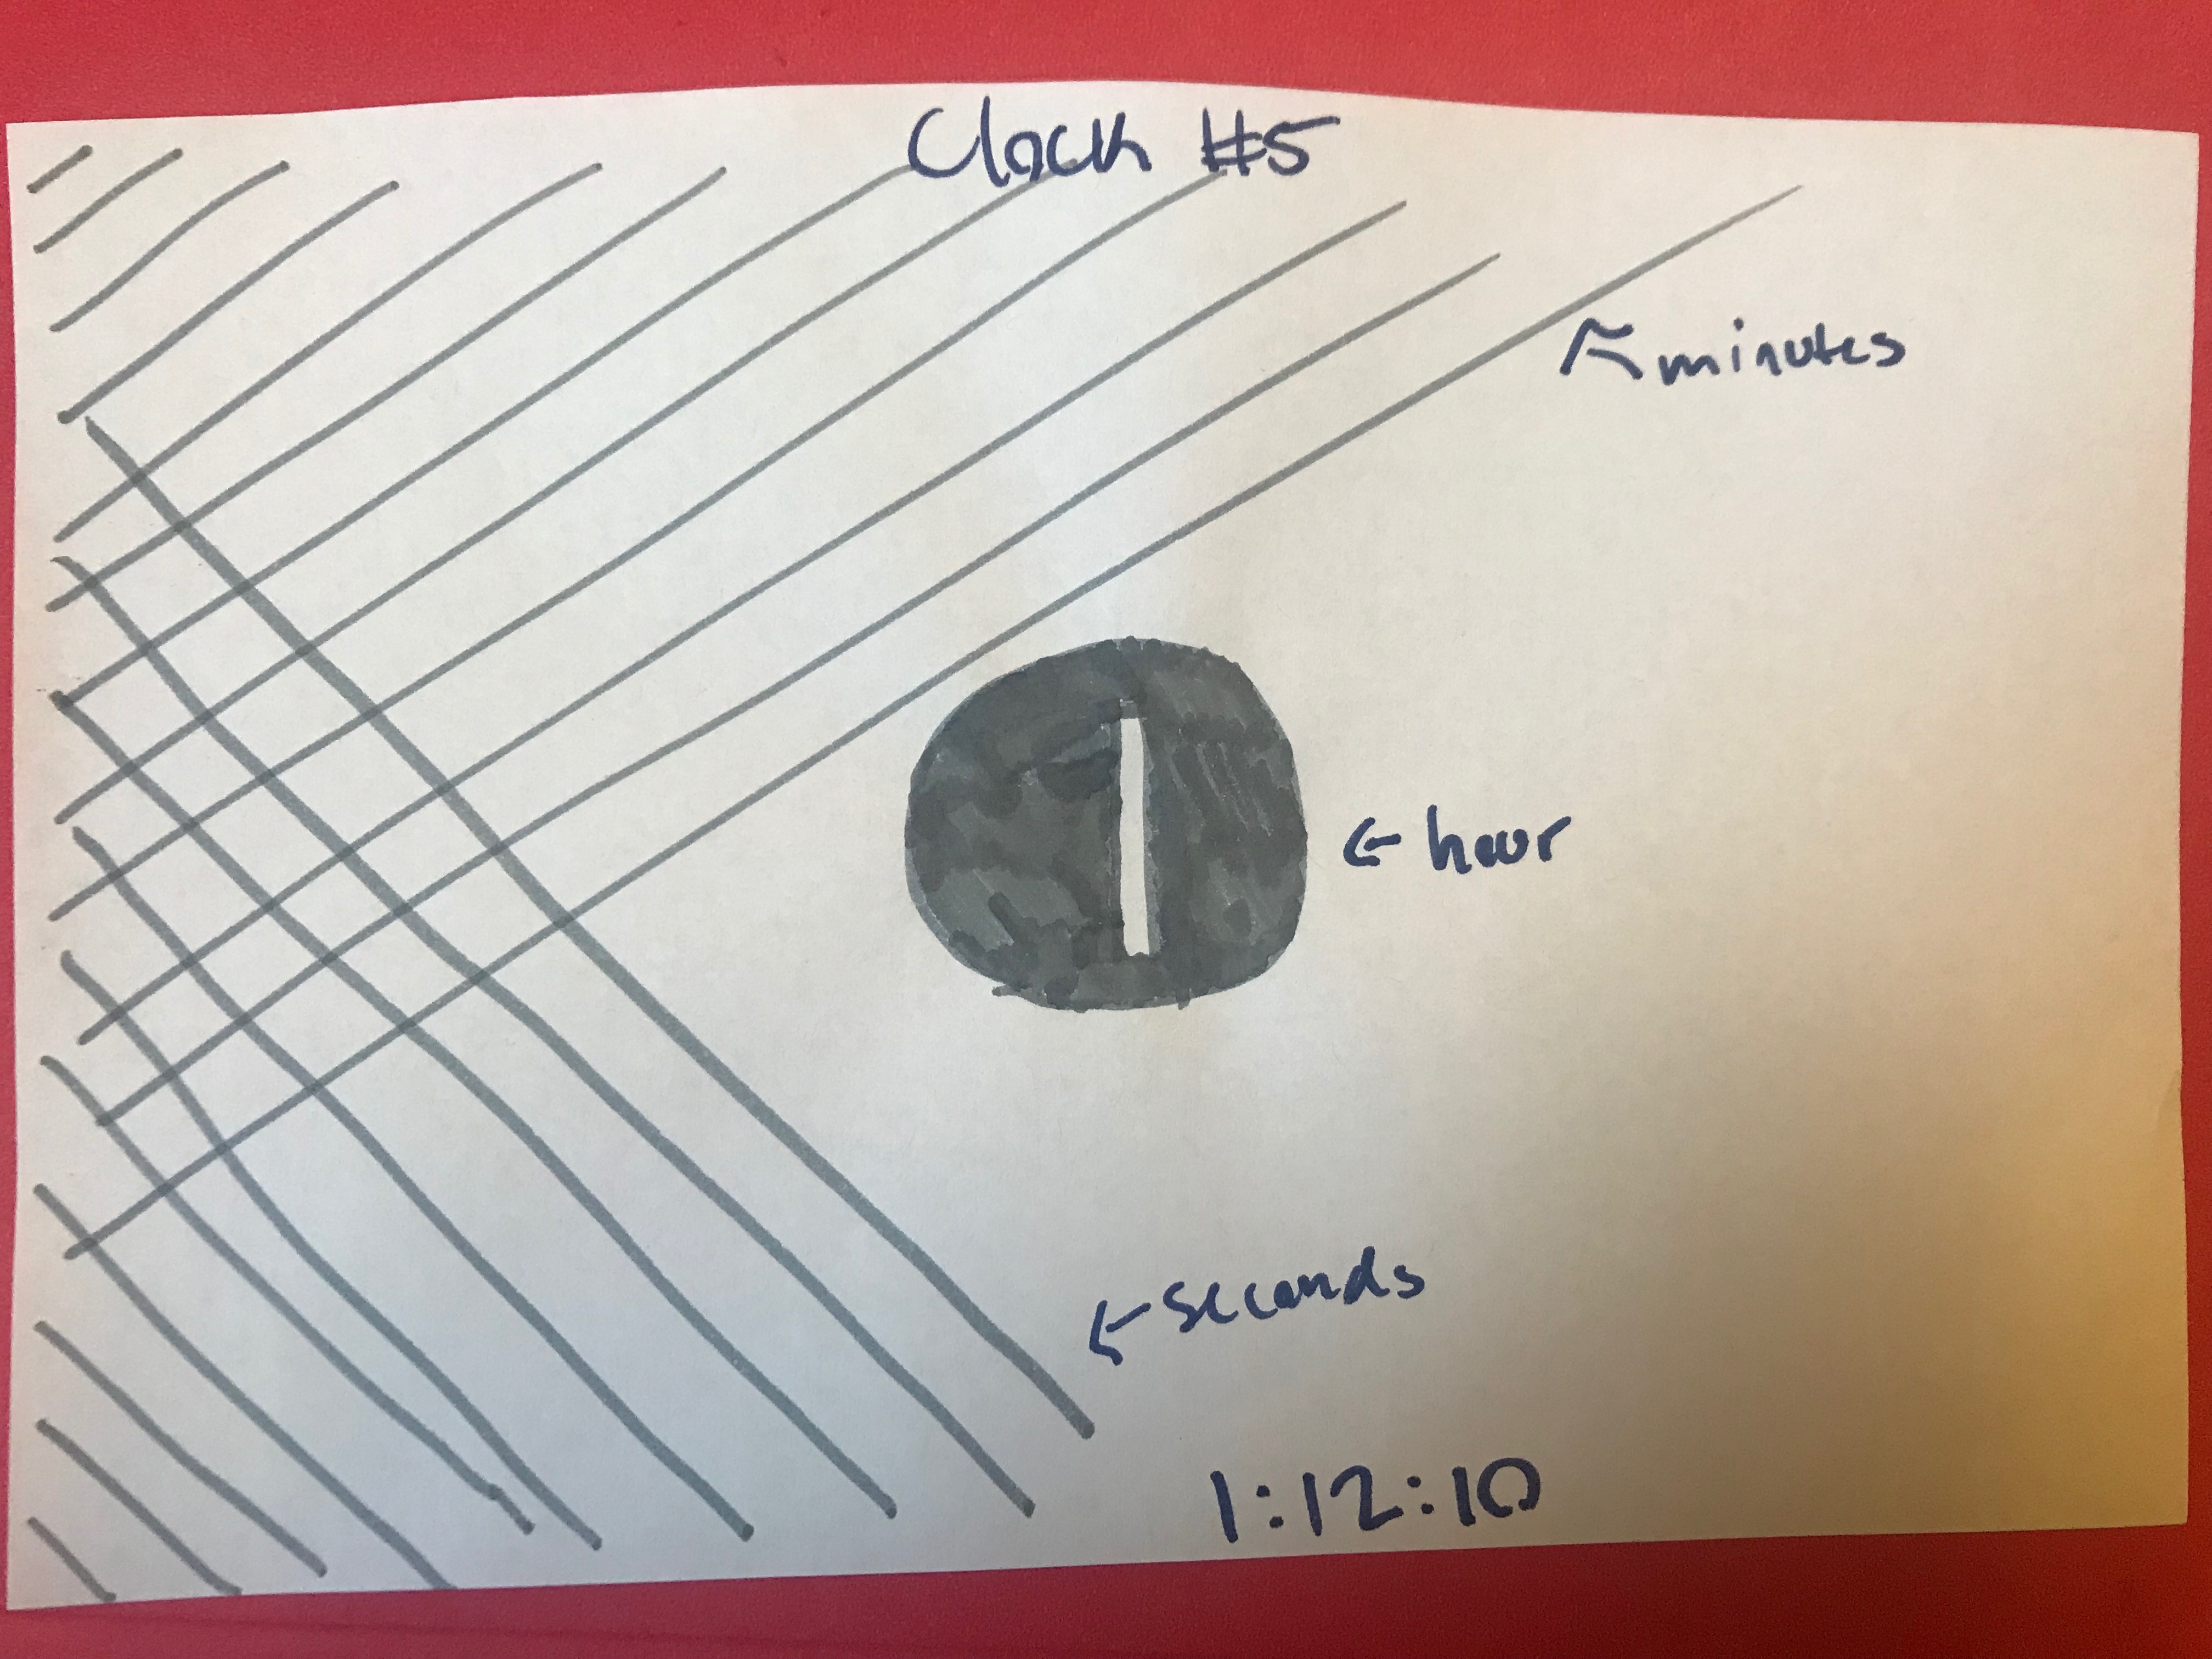 Clock #5
minutes
1
hour
seconds
1:12:10